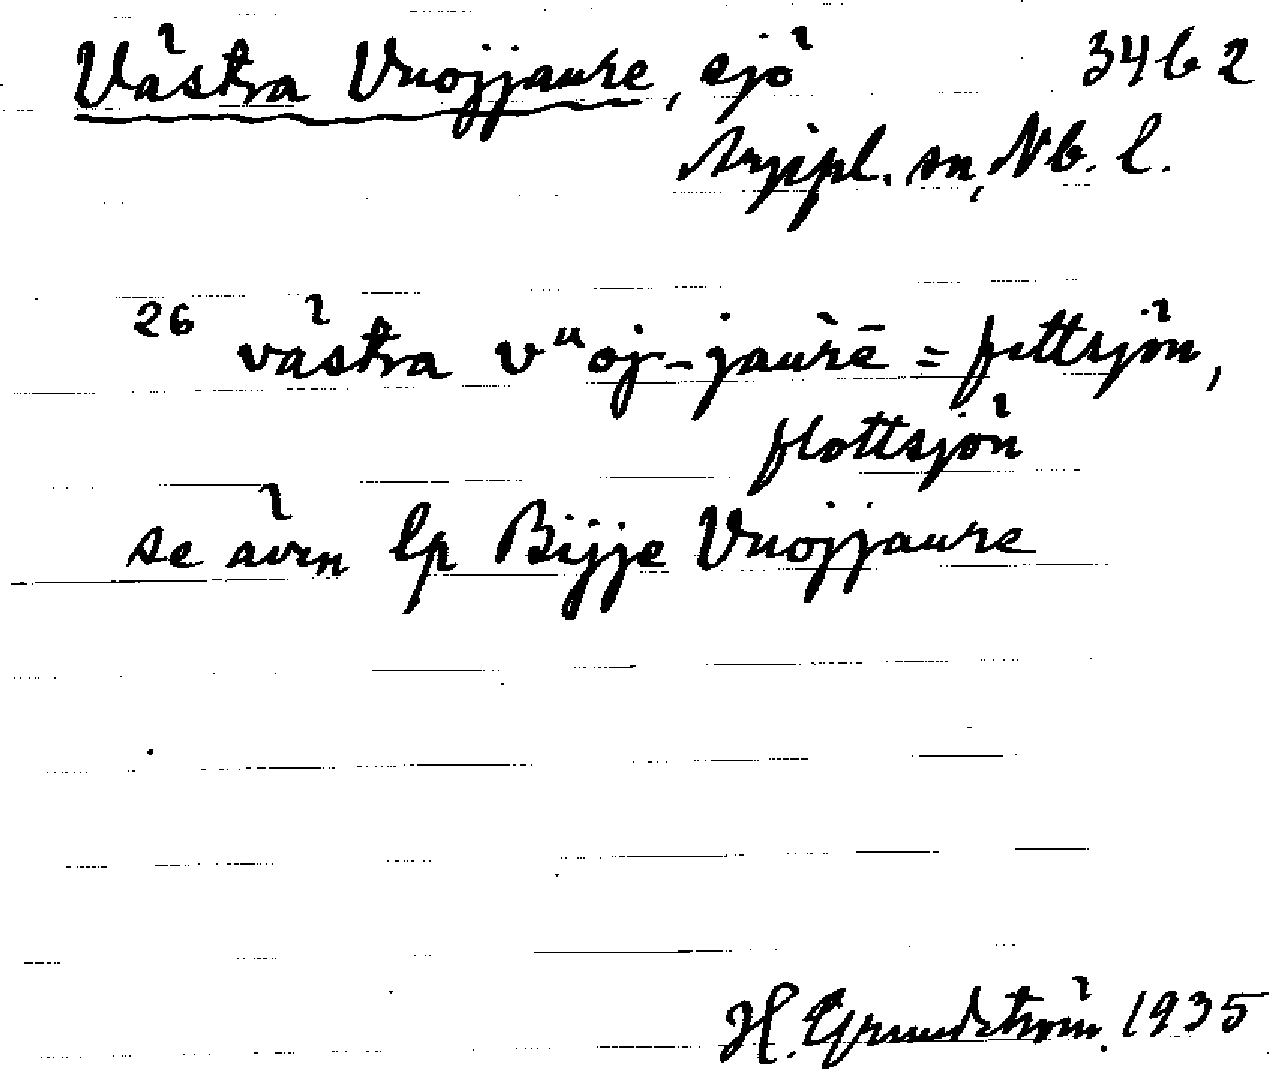 Västra Vuojjaure, sjö 3462
Arjepl. sn, Nb. l.
26 västra vuoj-jaùrē = fettsjön,
flottsjön
se även lp Bijje Vuojjaure
H. Grundström. 1935